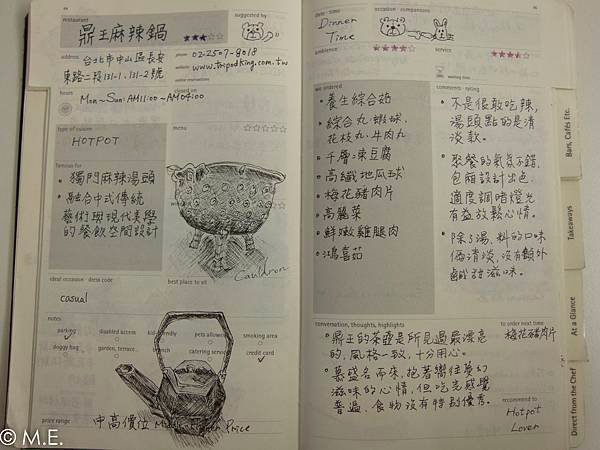 restaurant
鼎王麻辣鍋
suggested by
address
台北市中山區長安
東路二段131-1、131-2號
phone
02-2507-8018
website
www.tripodking.com.tw
online reservations
hours
closed on
Mon~Sun: AM11:00~AM04:00
type of cuisine
menu
HOTPOT
famous for
• 獨門麻辣湯頭
• 融合中式傳統
藝術與現代美學
的餐飲空間設計
Cauldron
ideal occasion · dress code
best place to sit
casual
notes
parking
disabled access
kid-friendly
pets allowed
smoking area
doggy bag
garden, terrace
brunch
catering service
credit card
price range
中高價位
Price
© M.E.
date · time
Dinner
Time
occasion · companions
ambience
service
waiting time
we ordered
• 養生綜合菇
• 綜合丸:蝦球、
花枝丸、牛肉丸
• 千層凍豆腐
• 高纖地瓜球
• 梅花豬肉片
• 高麗菜
• 鮮嫩雞腿肉
• 鴻喜菇
comments · rating
• 不是很敢吃辣,
湯頭點的是清
淡款。
• 聚餐的氣氛不錯,
包廂設計出色,
適度調暗燈光
有益放鬆心情。
• 除了湯、料的口味
偏清淡,沒有額外
鹹甜滋味。
conversation, thoughts, highlights
• 鼎王的茶壺是所見過最漂亮
的,風格一致,十分用心。
• 慕盛名而來,抱著嚮往夢幻
滋味的心情,但吃完感覺
普通,食物沒有特別優秀。
to order next time
梅花豬肉片
recommended to
Hotpot
Lover
Bars, Cafés Etc.
Takeaways
At a Glance
Direct from the Chef